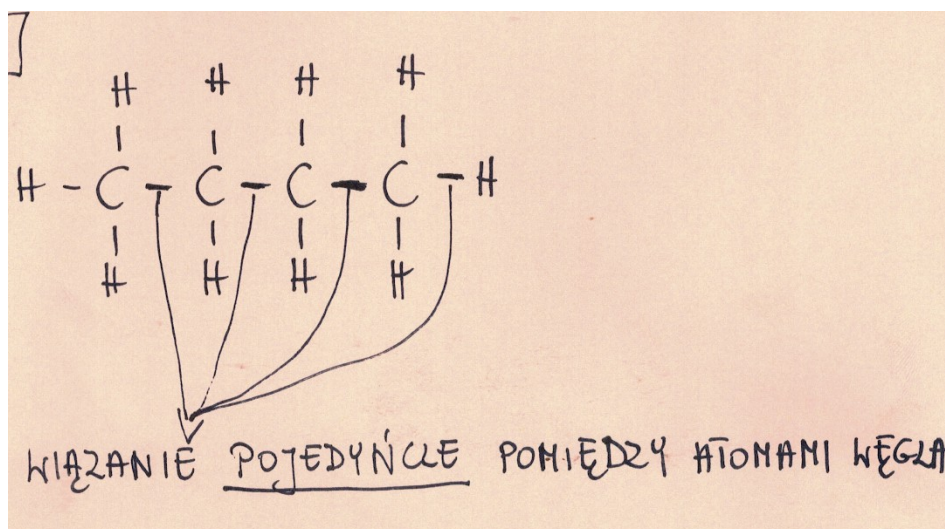 H H H H
H - C - C - C - C - H
H H H H
WIĄZANIE POJEDYŃCZE POMIĘDZY ATOMAMI WĘGLA